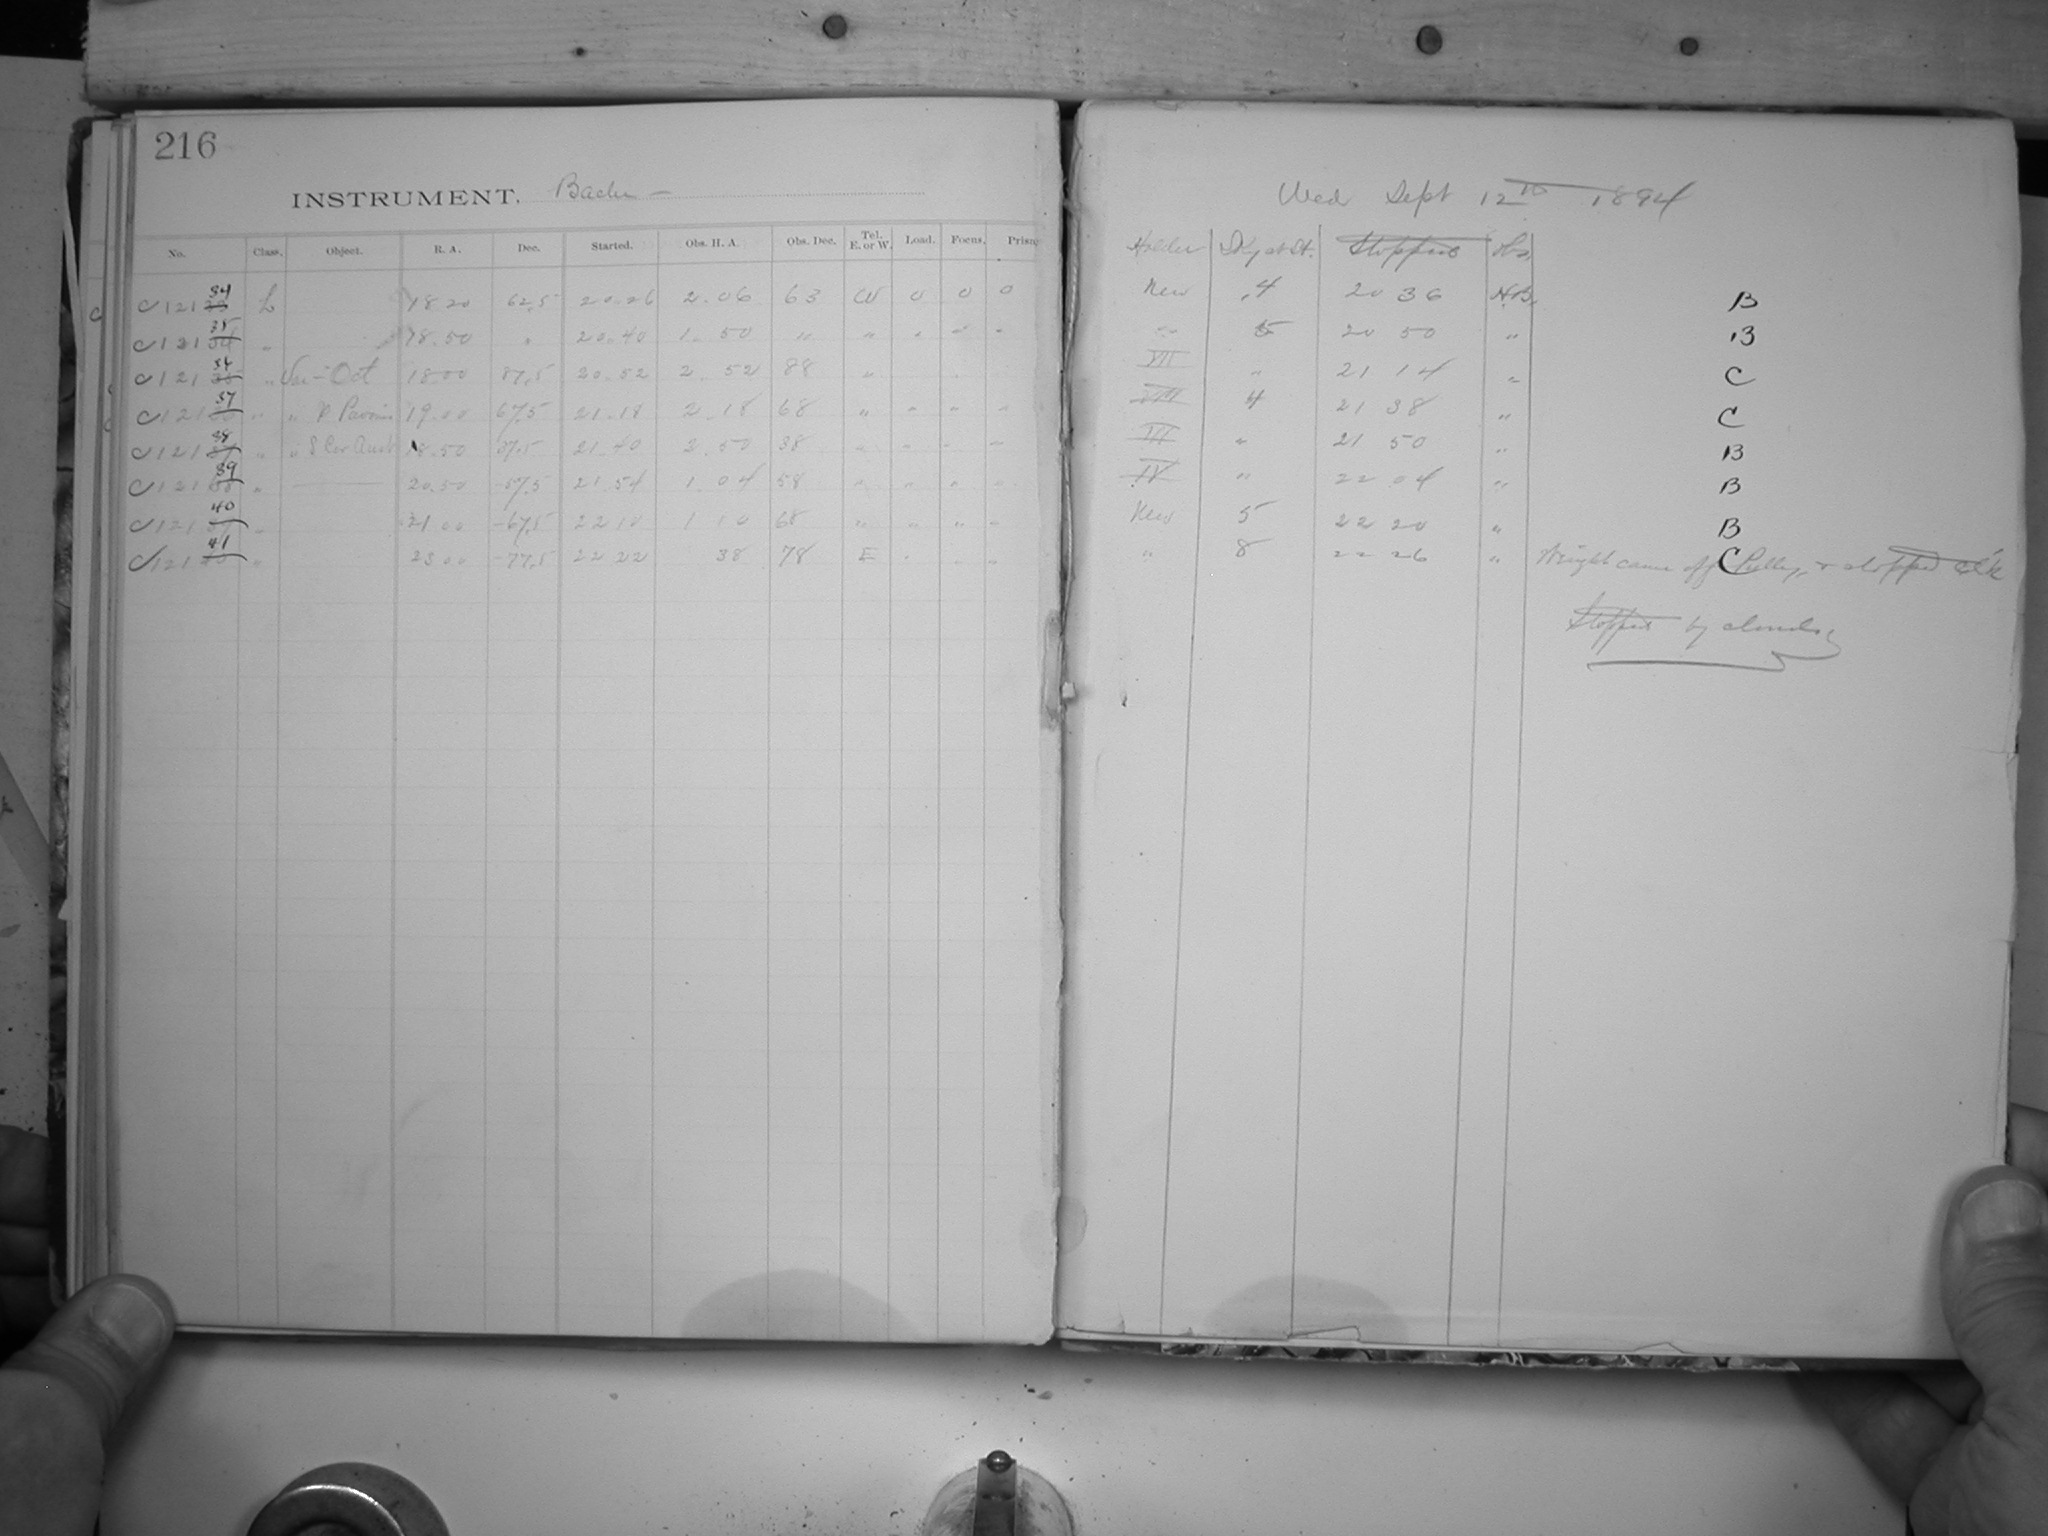 216
INSTRUMENT. Bache
Wed Sept 12th 1894
No. Class. Object. R. A. Dec. Started. Obs. H. A. Obs. Dec. Tel. E. or W. Load. Focus. Prism
Holder Sky at St. Stopped Obs.
C12134 L 18.20 62.5 20.26 2.06 63 W 0 0 0 New 4 20 36 B
C12135 " 18.50 " 20.40 1.50 " " " " " " 5 20 50 " B
C121 " Oct 18.00 87.5 20.52 2.52 88 " VII " 21 14 " C
C12137 " " Pavonis 19.00 67.5 21.18 2.18 68 " " " " VIII 4 21 38 " C
C12138 " " S Cor Aust 18.50 37.5 21.40 2.50 38 " " " " III " 21 50 " B
C12139 " 20.50 -57.5 21.54 1.04 58 " " " " IV " 22 04 " B
C12140 " 21.00 -67.5 22 10 1 10 68 " " " " New 5 22 20 " B
C12141 " 23.00 -77.5 22 22 38 78 E " " " " 8 22 26 " C Weight came off Pulley, & stopped
Stopped by clouds